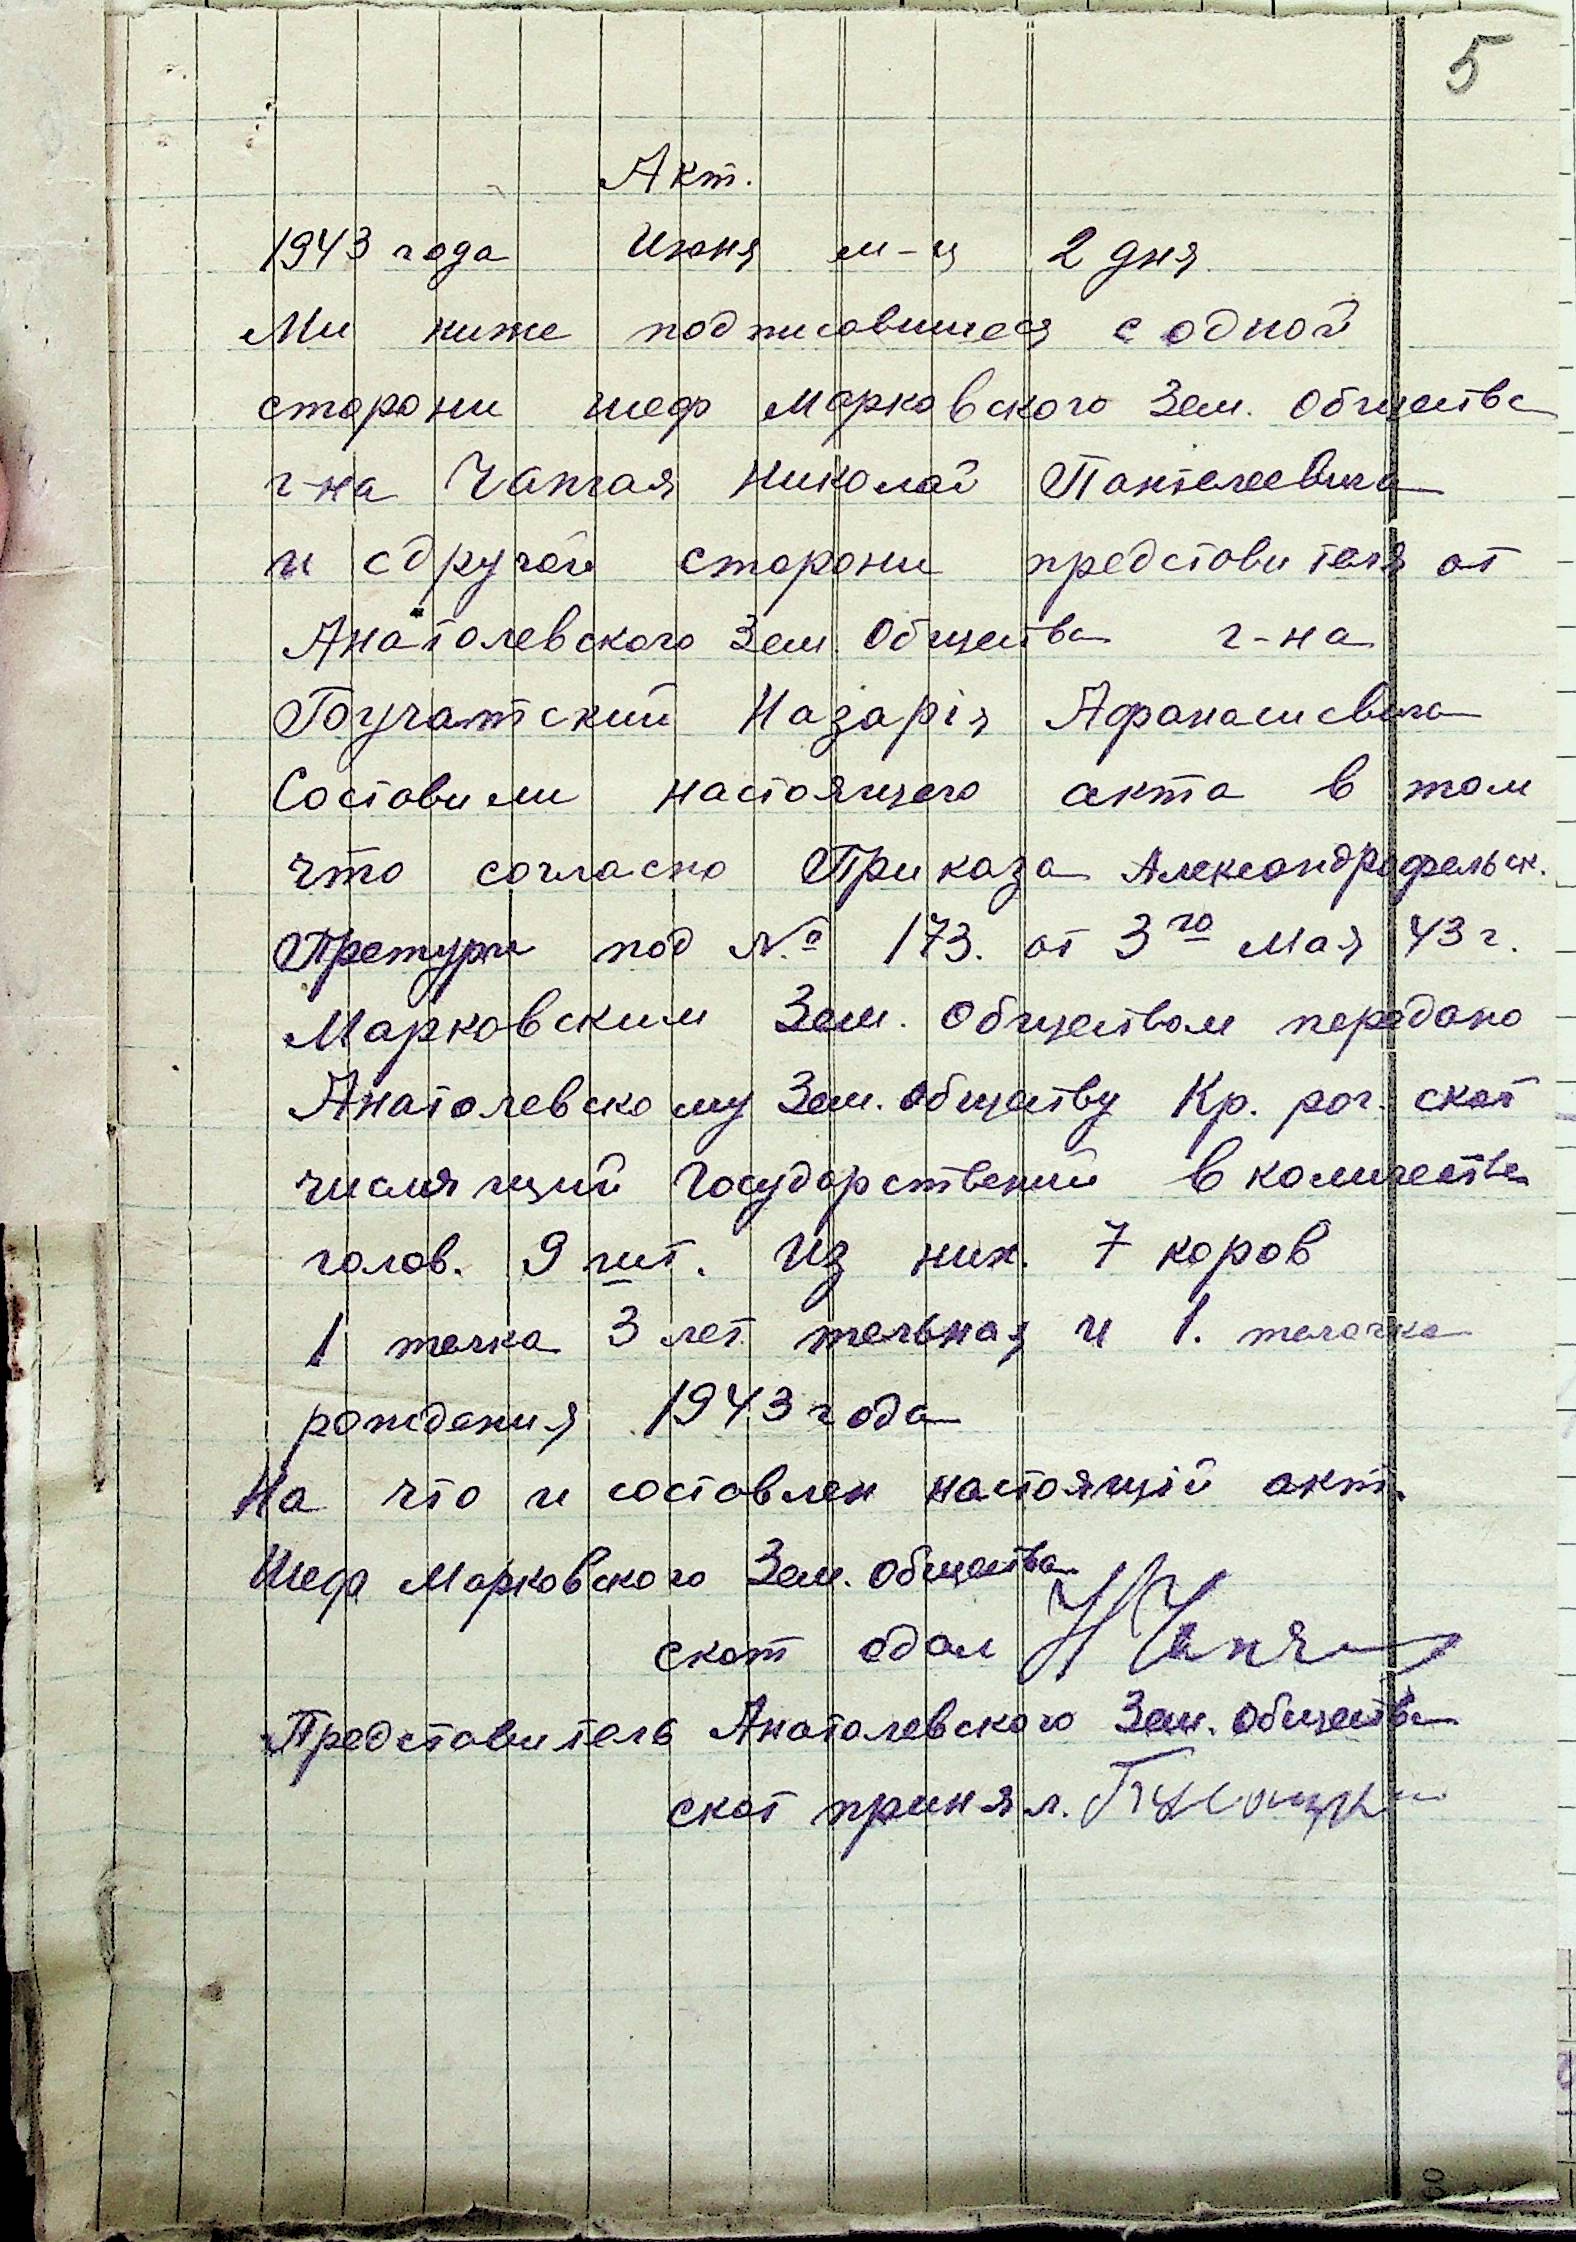 5
Акт.
1943 года Июня м-ц 2 дня
Ми ниже подписавшиеся с одной
сторони шеф Марковского Зем. Общества
г-на Чапгая Николай Пантелеевича
и сдругой сторони представителя от
Анатолевского Зем. Общества г-на
Назарія Афанасиевича
Составили настоящего акта в том
что согласно Приказа Александрофельск.
Претури под №º 173. от 3го Мая 43 г.
Марковским Зем. Обществом передано
Анатолевскому Зем. Обществу Кр. рог. скот
числящий Государствений в количестве
голов. 9 шт. Из них. 7 коров
1 телка 3 лет тельная и 1. телочка
рождения 1943 года
На что и составлен настоящій акт.
Шеф Марковского Зем. Общества
скот сдал
Представитель Анатолевского Зем. Общества
скот принял.